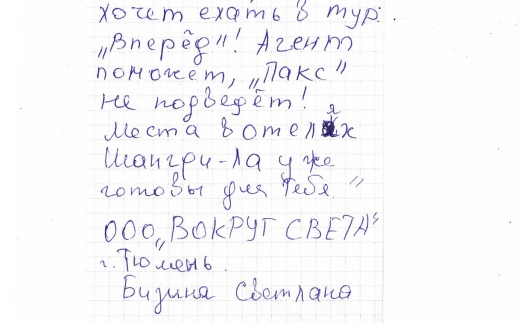 хочет ехать в тур.
„Вперёд"! Агент
поможет, „Пакс"
не подведёт!
Места в отелях
Шангри-Ла уже
готовы для тебя."
ООО „ВОКРУГ СВЕТА"
г. Тюмень.
Бизина Светлана